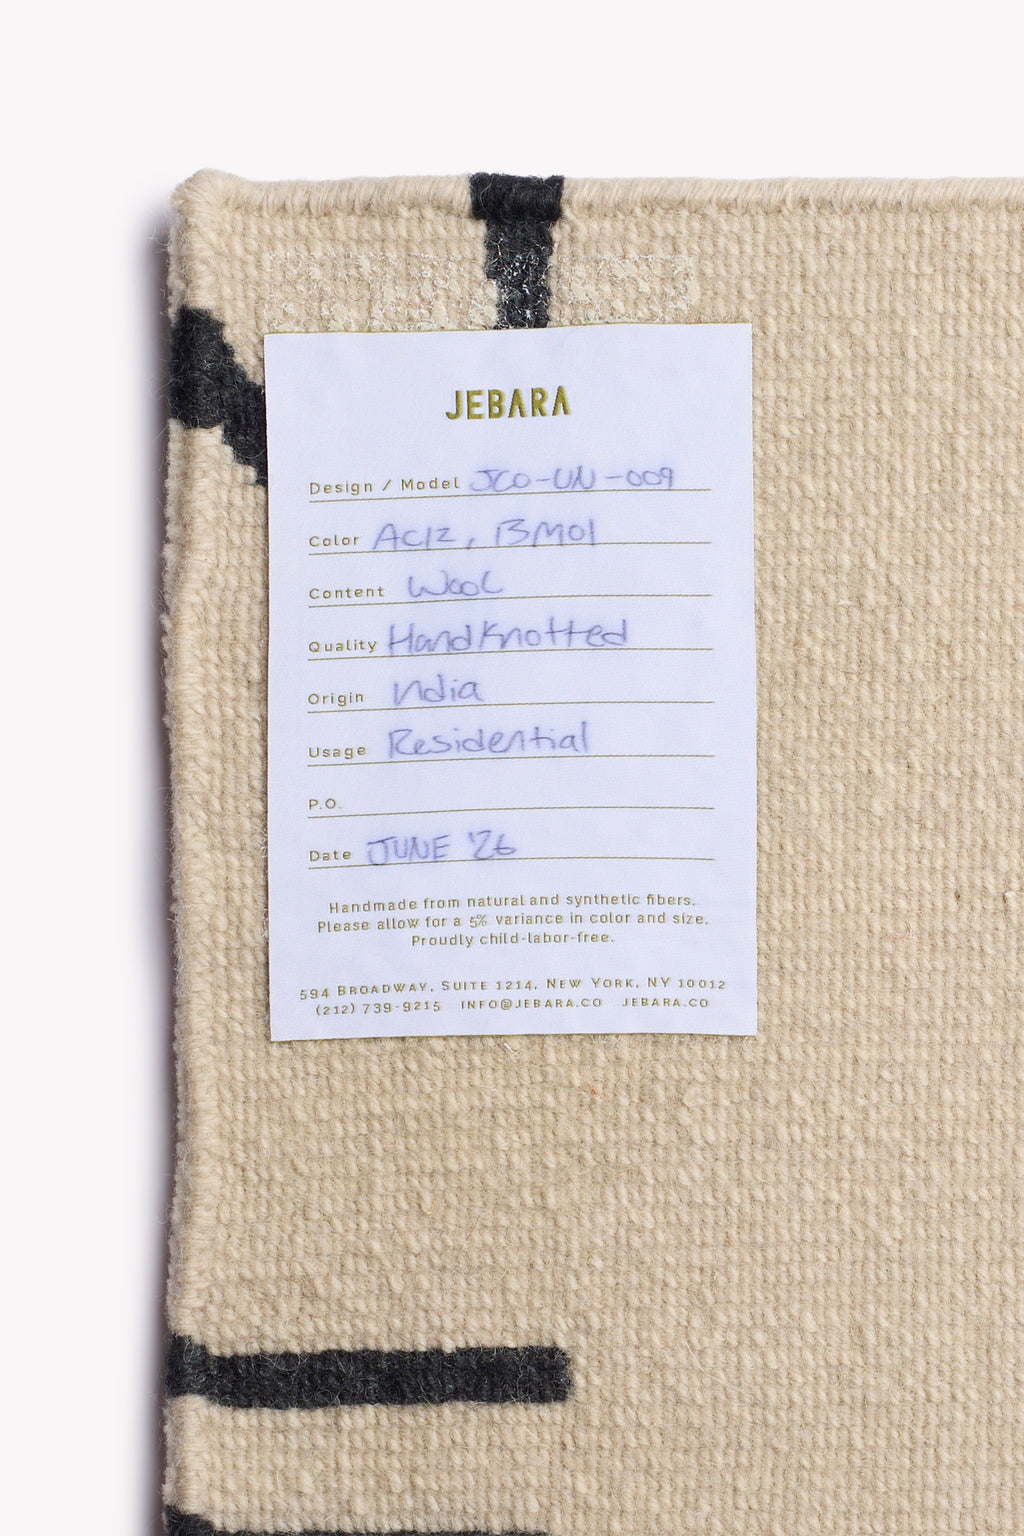 JEBARA
Design / Model JCO-UN-009
Color AC12, BM01
Content Wool
Quality Hand Knotted
Origin India
Usage Residential
P.O.
Date JUNE '26
Handmade from natural and synthetic fibers.
Please allow for a 5% variance in color and size.
Proudly child-labor-free.
594 BROADWAY, SUITE 1214, NEW YORK, NY 10012
(212) 739-9215 INFO@JEBARA.CO JEBARA.CO